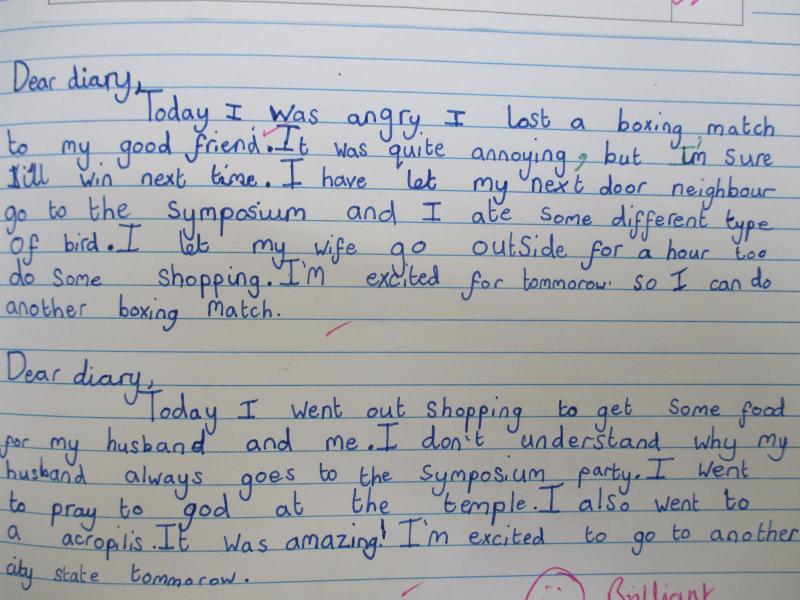 Dear diary,
Today I was angry I lost a boxing match
to my good friend. It was quite annoying, but I'm sure
I'll win next time. I have let my next door neighbour
go to the symposium and I ate some different type
of bird. I let my wife go outside for a hour too
do some shopping. I'm excited for tommorow. so I can do
another boxing match.
Dear diary,
Today I went out shopping to get some food
for my husband and me. I don't understand why my
husband always goes to the symposium party. I went
to pray to god at the temple. I also went to
a acropilis. It was amazing! I'm excited to go to another
city state tommorow.
Brilliant